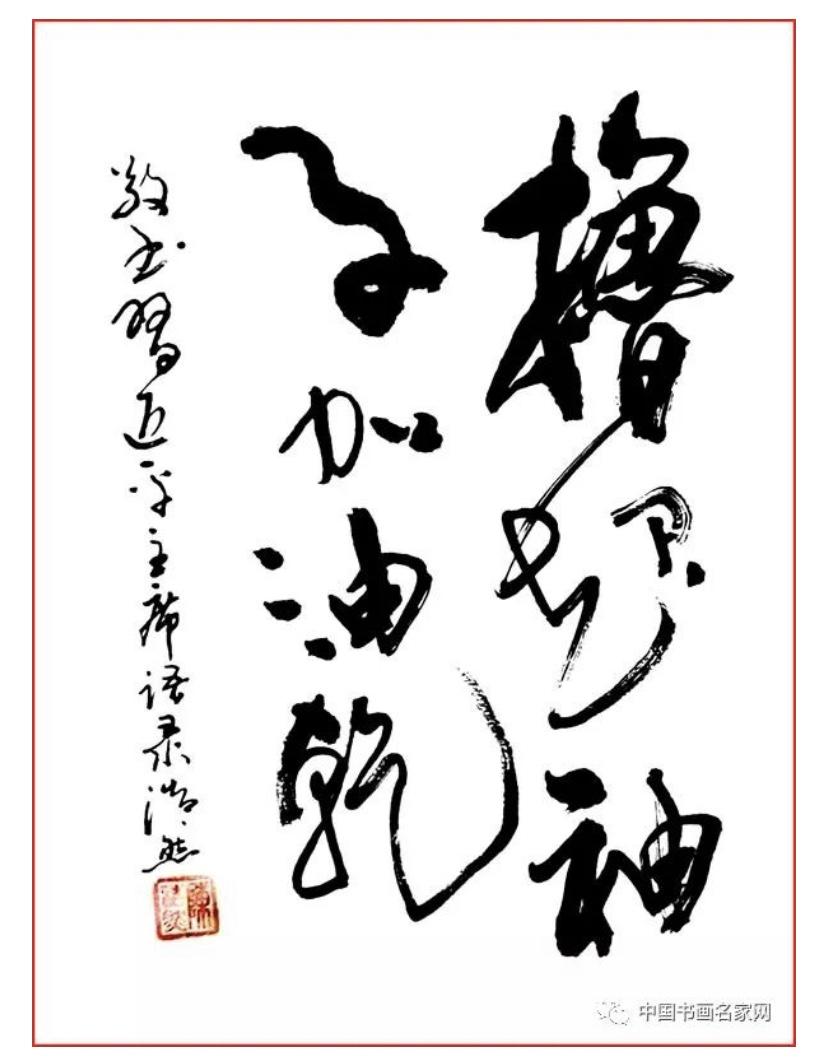 撸起袖
子加油乾
敬书习近平主席语录浩然
中国书画名家网